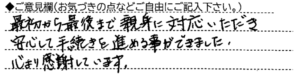 ◆ご意見欄(お気づきの点などご自由にご記入下さい。)
最初から最後まで親身に対応いただき
安心して手続きを進める事ができました。
心より感謝しています。